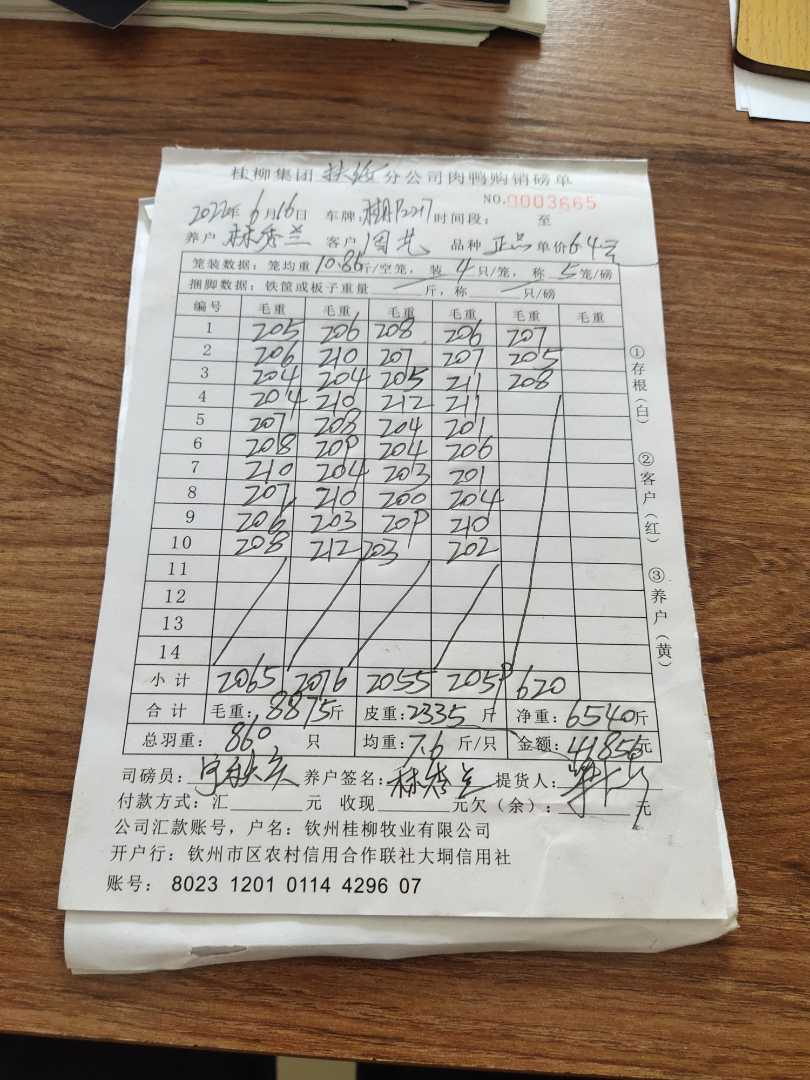 桂柳集团 扶绥 分公司肉鸭购销磅单
NO.0003665
2022年6月16日 车牌: 时间段: 至
养户 林秀兰 客户 周艺 品种 正品 单价6.4元
笼装数据: 笼均重10.86斤/空笼, 装 4 只/笼, 称 5 笼/磅
捆脚数据: 铁筐或板子重量 斤, 称 只/磅
编号 毛重 毛重 毛重 毛重 毛重 毛重
1 205 206 208 206 207
2 206 210 207 207 205
3 204 204 205 211 208
4 204 210 212 211
5 207 208 204 201
6 208 209 204 206
7 210 204 203 201
8 207 210 200 204
9 206 203 209 210
10 208 212 203 202
11
12
13
14
小计 2065 2076 2055 2059 620
合计 毛重: 8875斤 皮重:2335 斤 净重: 6540斤
总羽重: 860 只 均重: 7.6 斤/只 金额: 41856元
司磅员: 养户签名: 林秀兰 提货人:
付款方式: 汇 元 收现 元欠(余): 元
公司汇款账号, 户名: 钦州桂柳牧业有限公司
开户行: 钦州市区农村信用合作联社大垌信用社
账号: 8023 1201 0114 4296 07
①存根(白)
②客户(红)
③养户(黄)